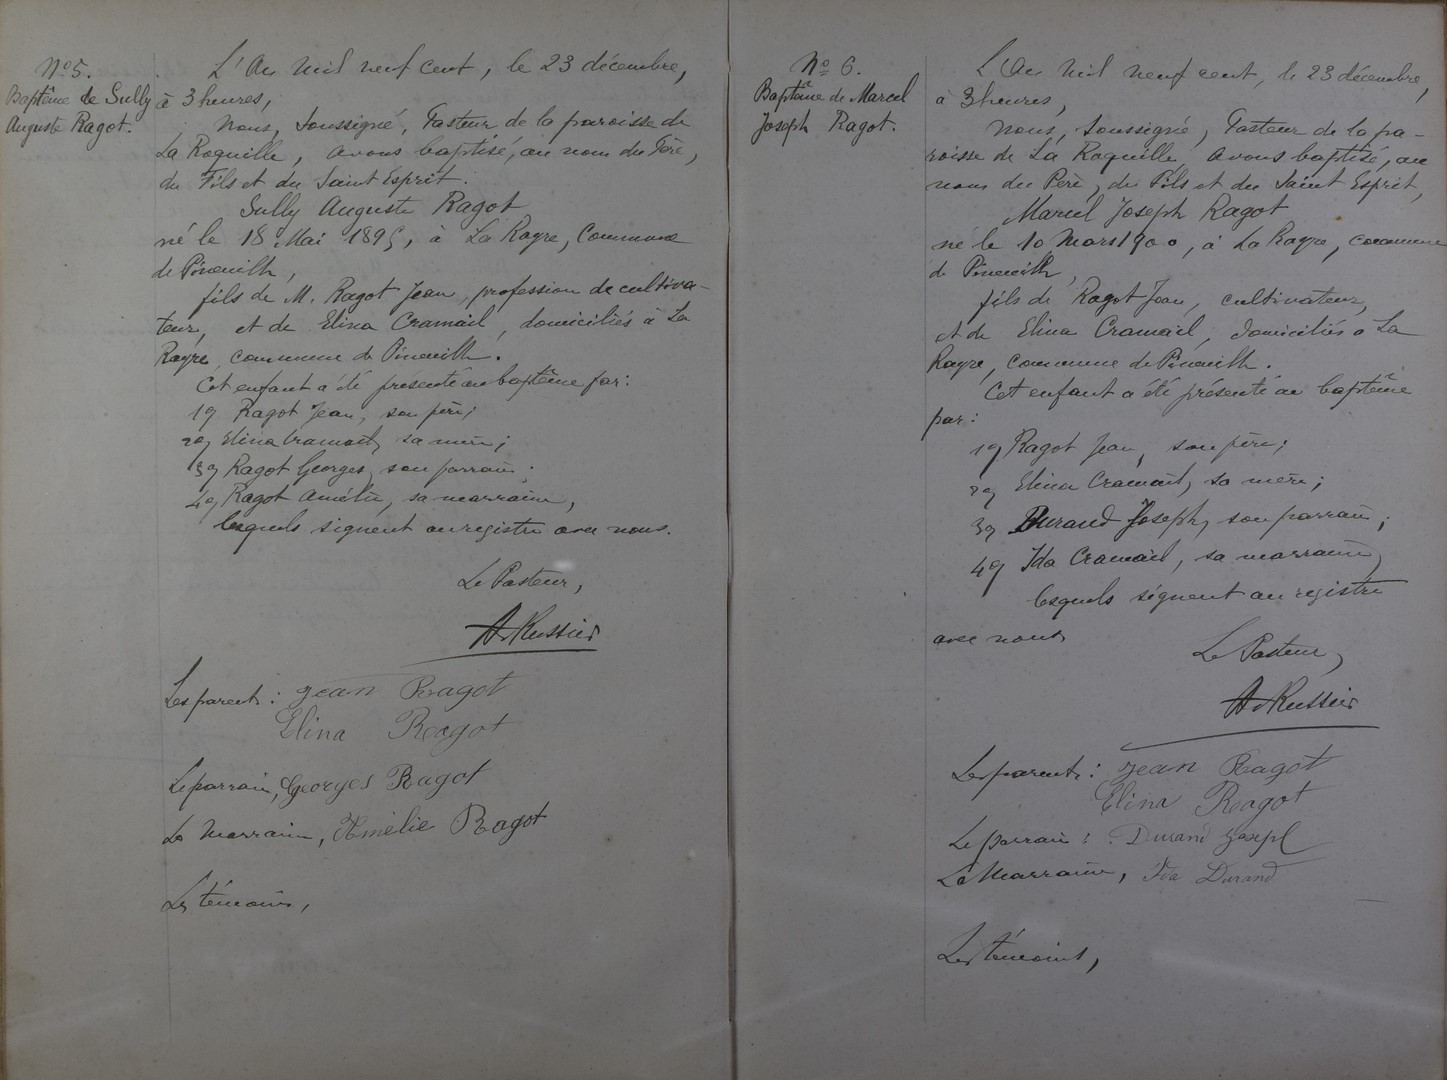 No 5.
Baptême de Sully
Auguste Ragot.
L'An mil neuf cent, le 23 décembre,
à 3 heures,
Nous, soussigné, Pasteur de la paroisse de
La Roquille, avons baptisé, au nom du Père,
du Fils et du Saint Esprit.
Sully Auguste Ragot
né le 18 Mai 1895, à La Rayre, Commune
de Pineuilh,
fils de M. Ragot Jean, profession de cultiva-
teur, et de Elina Cramail, domiciliés à La
Rayre, commune de Pineuilh.
Cet enfant a été présenté au baptême par:
1º Ragot Jean, son père;
2º Elina Cramail, sa mère;
3º Ragot Georges, son parrain;
4º Ragot Amélie, sa marraine,
lesquels signent au registre avec nous.
Le Pasteur,
A. Russier
Les parents: Jean Ragot
Elina Ragot
Le parrain, Georges Ragot
La Marraine, Amélie Ragot
Les témoins,
No 6.
Baptême de Marcel
Joseph Ragot.
L'An mil neuf cent, le 23 décembre,
à 3 heures,
Nous, soussigné, Pasteur de la pa-
roisse de La Roquille, avons baptisé, au
nom du Père, du Fils et du Saint Esprit,
Marcel Joseph Ragot
né le 10 Mars 1900, à La Rayre, commune
de Pineuilh,
fils de Ragot Jean, cultivateur,
et de Elina Cramail, domiciliés à La
Rayre, commune de Pineuilh.
Cet enfant a été présenté au baptême
par:
1º Ragot Jean, son père;
2º Elina Cramail, sa mère;
3º Durand Joseph, son parrain;
4º Ida Cramail, sa marraine,
lesquels signent au registre
avec nous
Le Pasteur,
A. Russier
Les parents: Jean Ragot
Elina Ragot
Le parrain: Durand Joseph
La Marraine, Ida Durand
Les témoins,